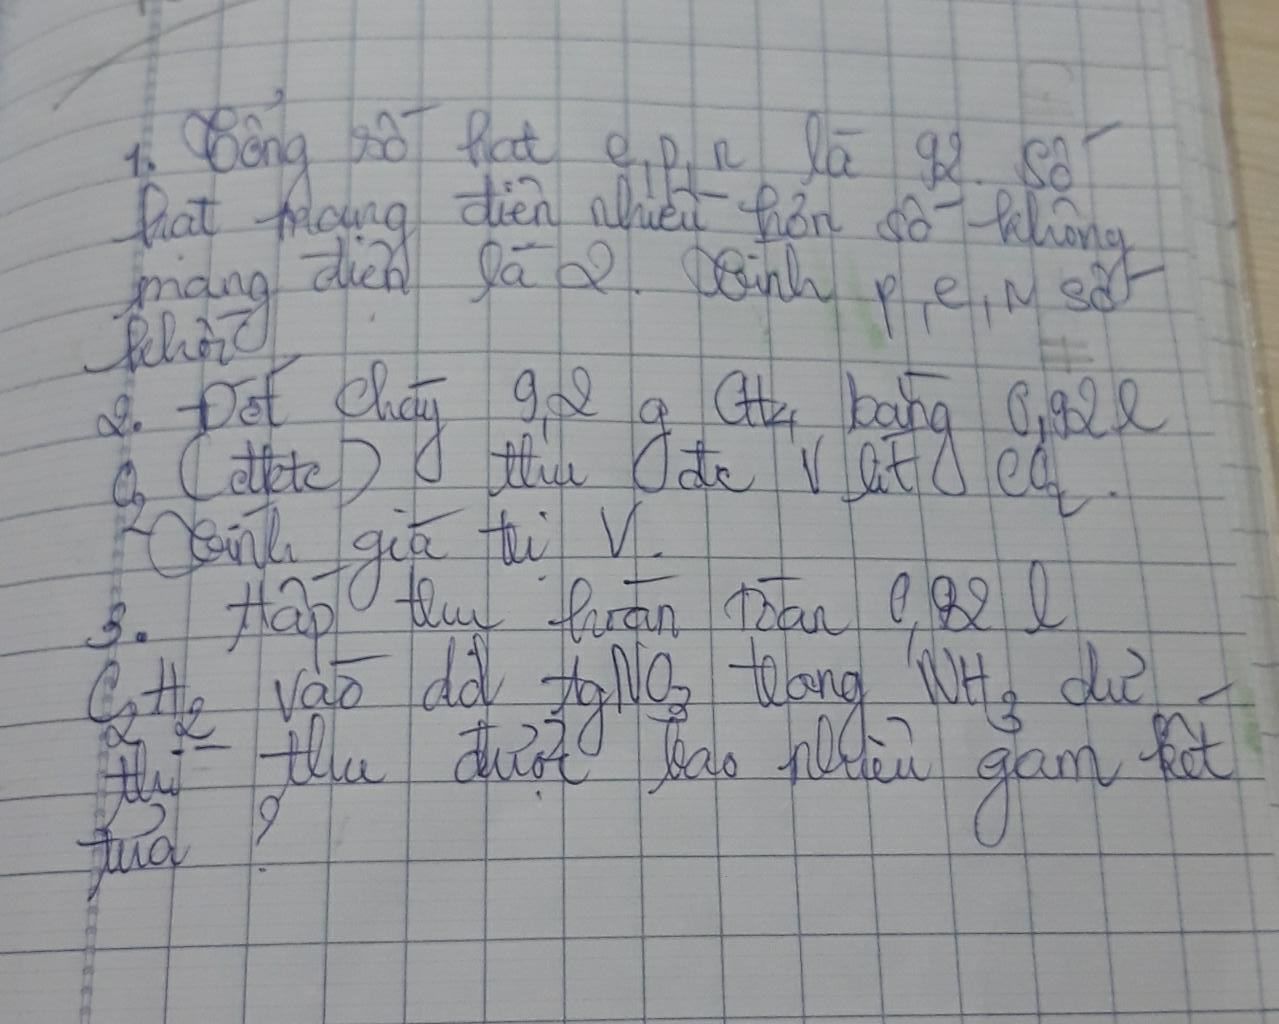 1. Tổng số hạt e, p, n là 92. Số
hạt mang điện nhiều hơn số không
mang điện là 2. Tính p, e, N số
khối?
2. Đốt cháy 9,2 g CH4 bằng 0,92 l
O2 (đktc) thu đc V lít CO2.
Tính giá trị V.
3. Hấp thụ hoàn toàn 0,92 l
C2H2 vào dd AgNO3 trong NH3 dư
thì thu được bao nhiêu gam kết
tủa ?